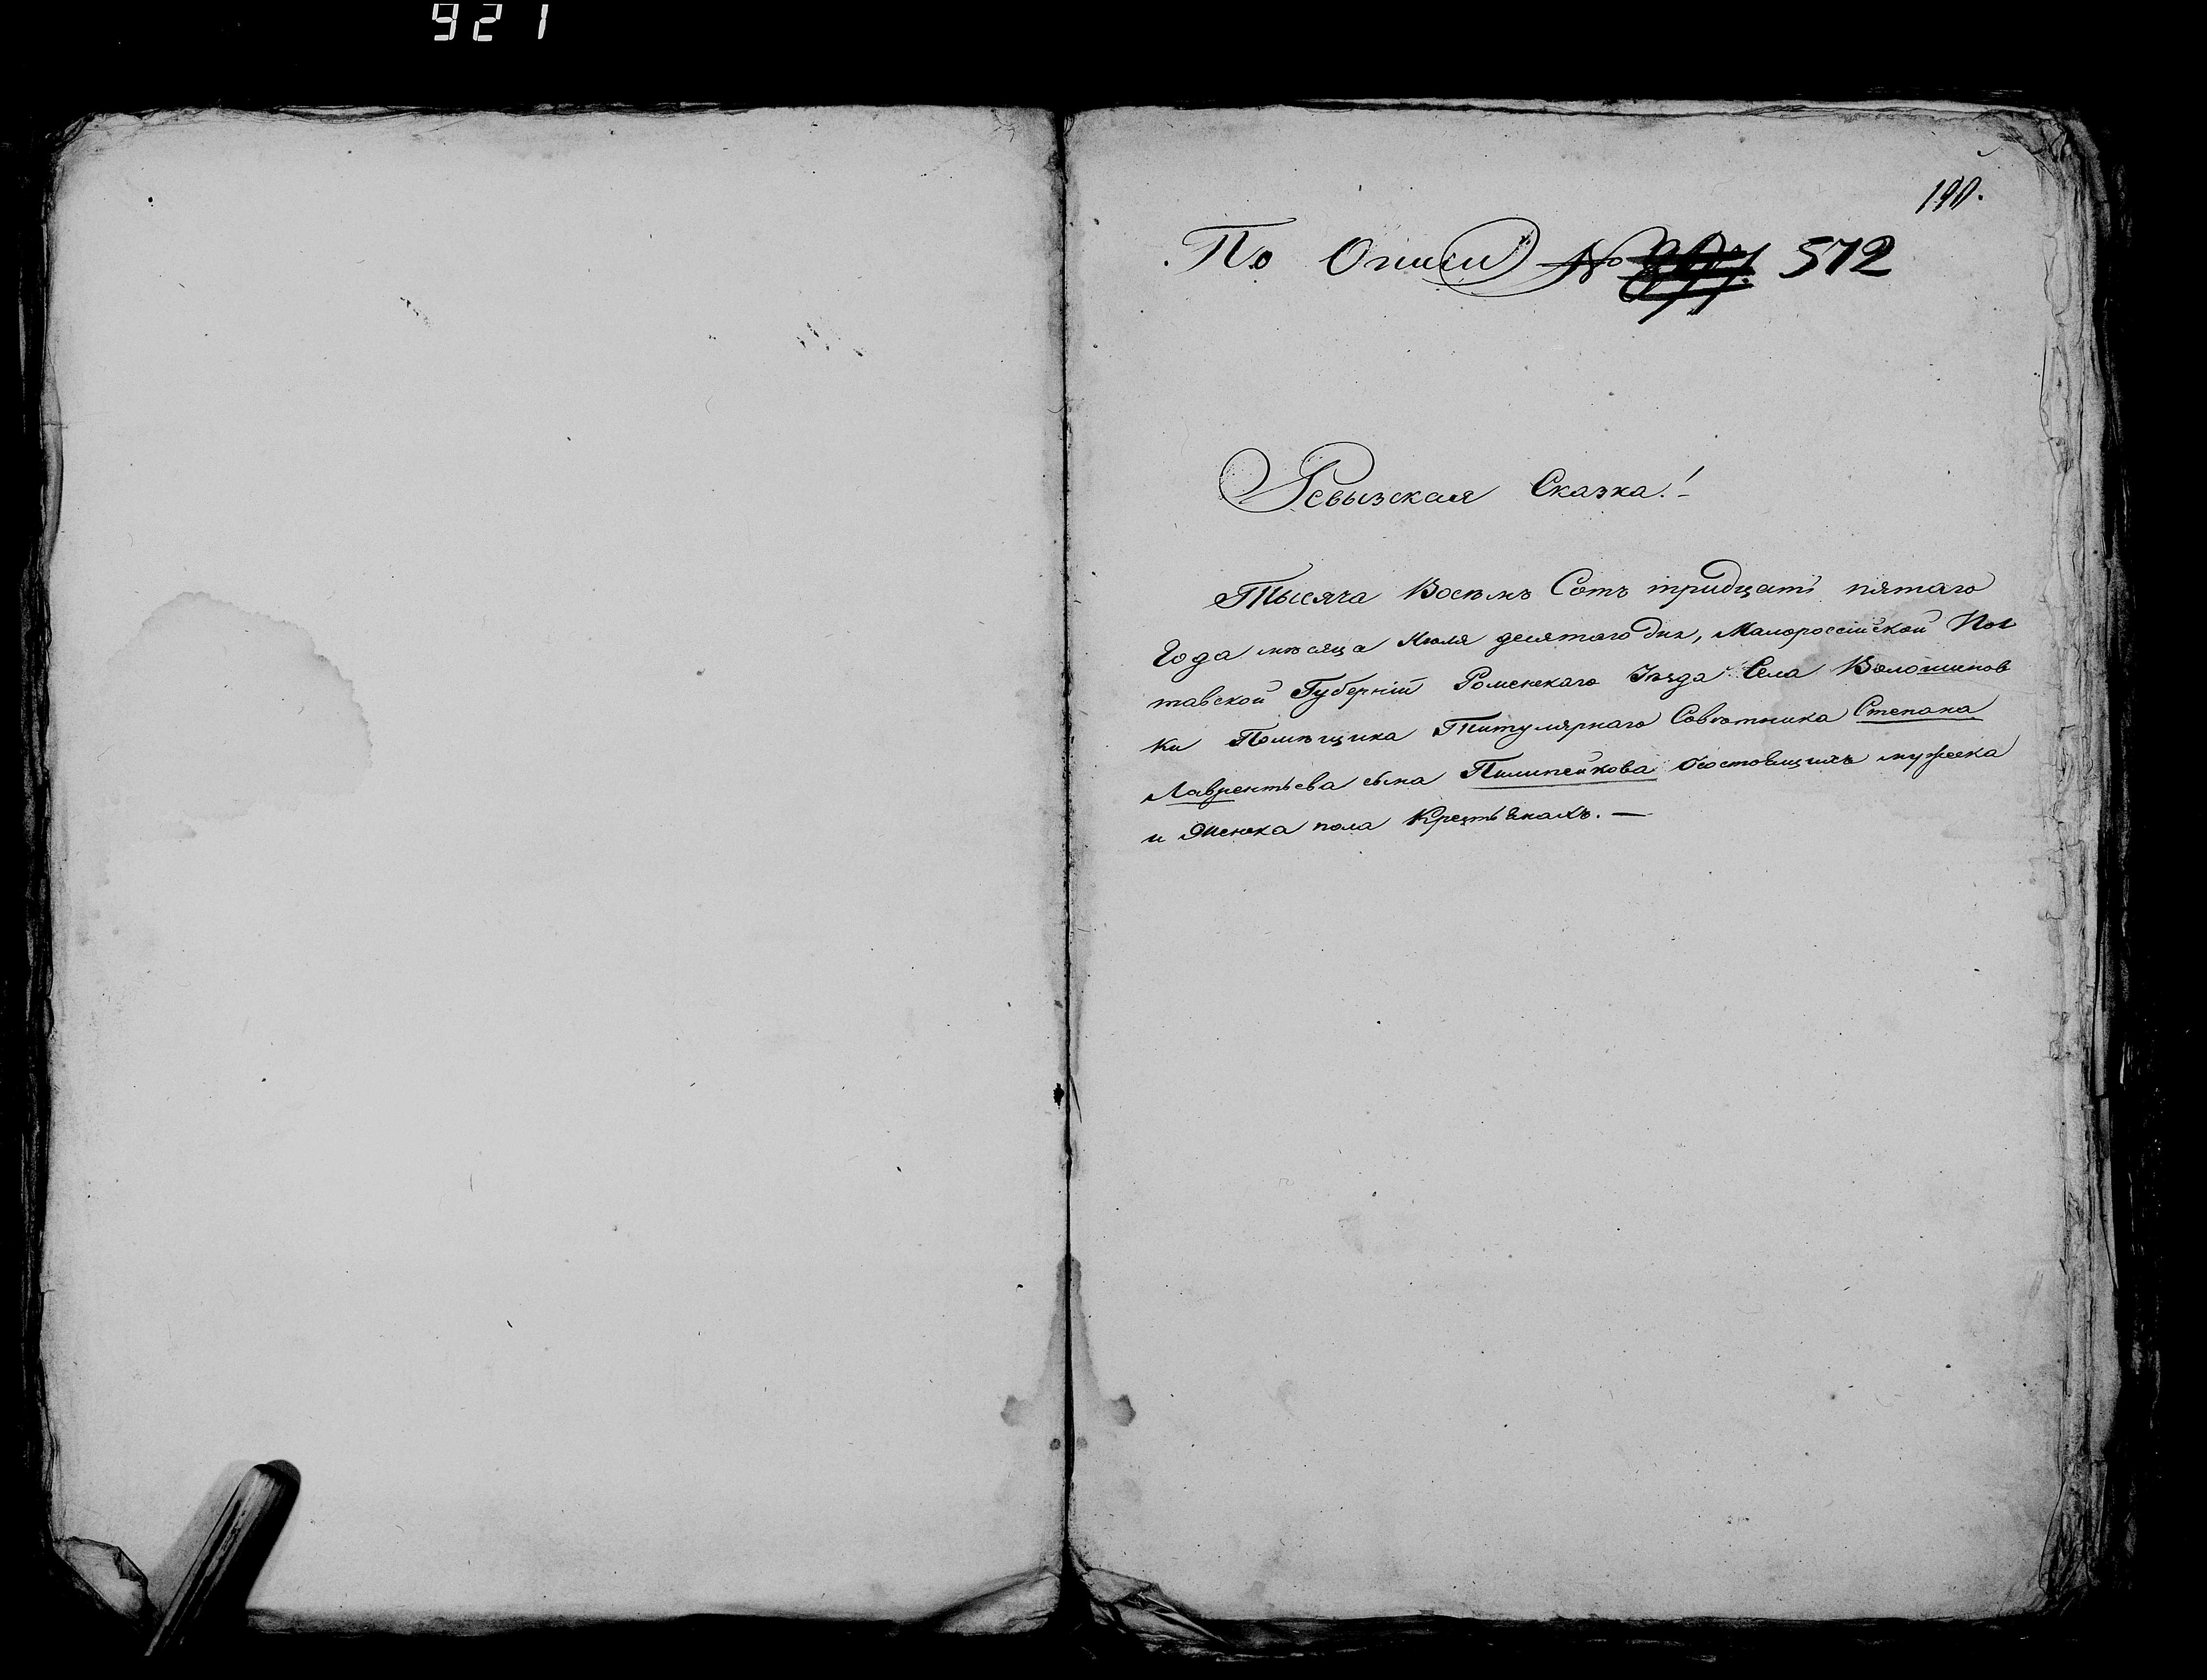 921
По Описи № 572
Ревызская Сказка!
Тысяча Восемъ Сотъ тридцать пятаго
Года мѣсяца Июля десятаго дня, Малороссийской Пол
тавской Губерніи Роменскаго Уѣзда Села Волошинов
ки Помѣщика Титулярнаго Совѣтника Степана
Лаврентьева сына Пилипейкова Осостоящихъ мужеска
и Женска пола Крестьянахъ. —